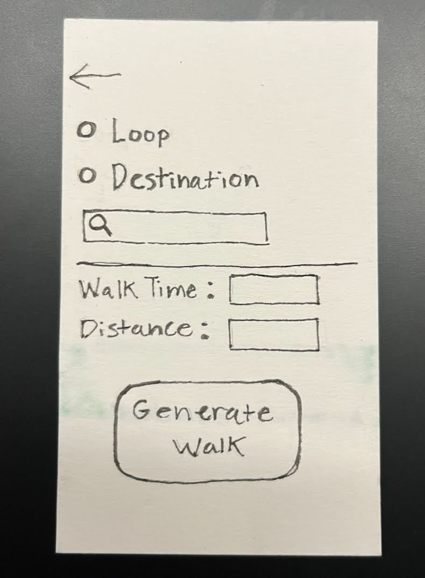 Loop
Destination
Walk Time:
Distance:
Generate
Walk